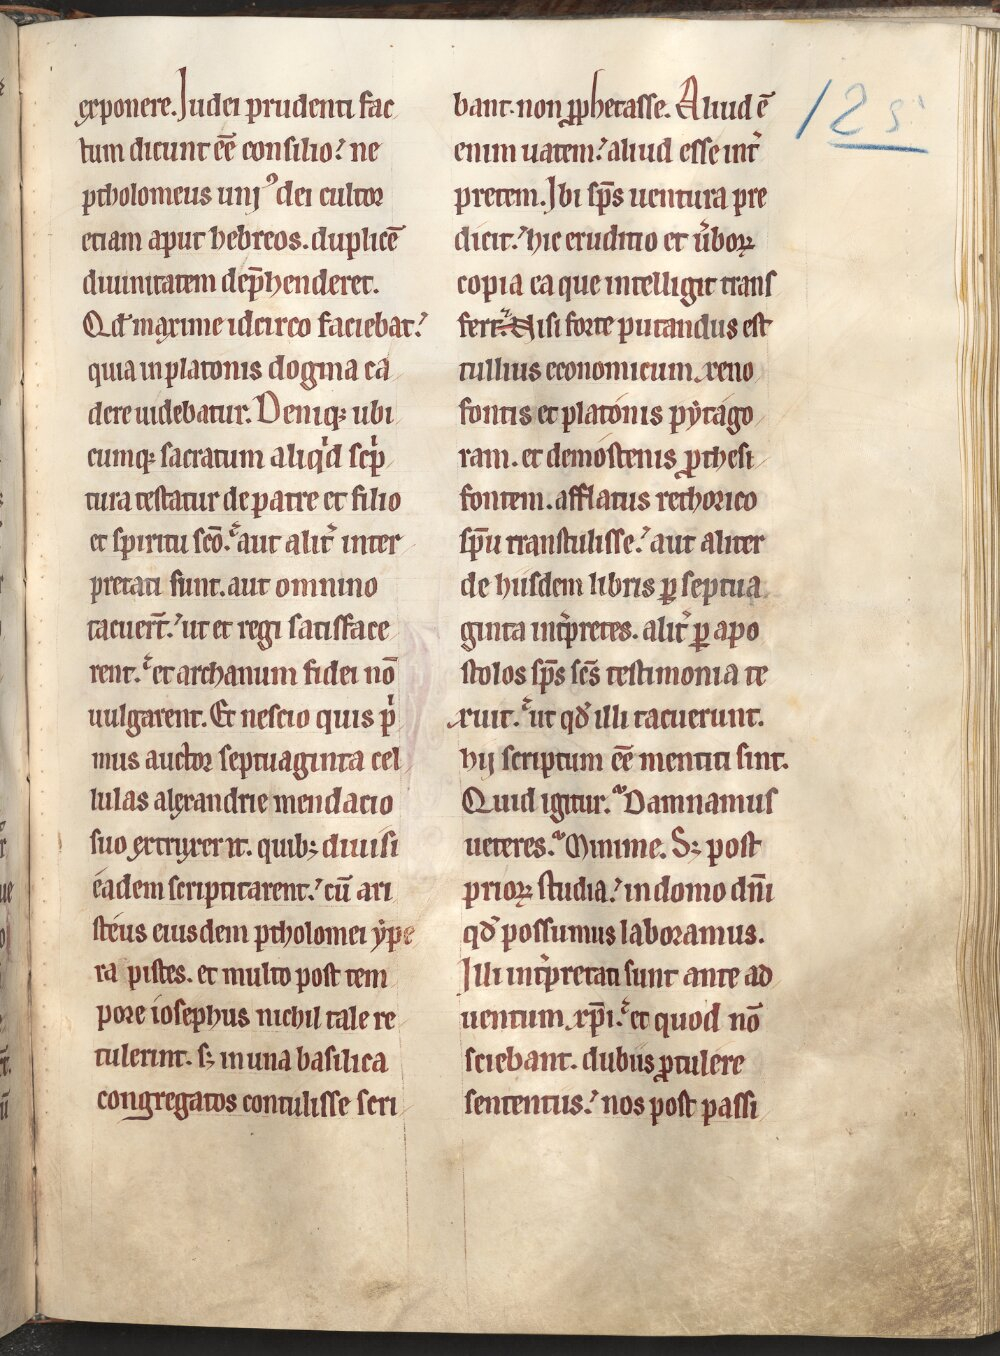 exponere. Judei prudenti fac
tum dicunt eē consilio? ne
ptholomeus uniꝰ dei cultor
etiam aput hebreos. duplicē
diuinitatem dep̄henderet.
Qđ maxime idcirco faciebat?
quia in platonis dogma ca
dere uidebatur. Deniqꝫ ubi
cumqꝫ sacratum aliqͥd scͥp
tura testatur de patre et filio
et spiritu scō. aut alit̉ inter
pretati sunt. aut omnino
tacuer̄t. ut et regi satisface
rent. et archanum fidei nō
uulgarent. Et nescio quis pͥ
mus auctor septuaginta cel
lulas alexandrie mendacio
suo extruxer̄t. quibꝫ diuisi
eadem scriptitarent. cū ari
steus eiusdem ptholomei ẏpe
ra pistes. et multo post tem
pore iosephus nichil tale re
tulerint. sꝫ in una basilica
congregatos contulisse scri
bant. non ꝓphetasse. Aliud ē
enim uatem? aliud esse int̉
pretem. Ibi sp̄s uentura pre
dicit? hic eruditio et ūboꝝ
copia ea que intelligit trans
fert. Nisi forte putandus est
tullius economicum xeno
fontis et platonis pẏtago
ram. et demostenis ꝓthesi
fontem. afflatus rethorico
sp̄u transtulisse? aut aliter
de hiisdem libris ꝑ septua
ginta int̉pretes. alit̉ ꝑ apo
stolos sp̄s sc̄s testimonia te
xuit. ut qđ illi tacuerunt.
hij scriptum eē mentiti sint.
Quid igitur. Damnamus
ueteres. Minime. Sꝫ post
prioꝝ studia? in domo dn̄i
qđ possumus laboramus.
Illi int̉pretati sunt ante ad
uentum xp̄i. et quod nō
sciebant. dubiis ꝓtulere
sententiis? nos post passi
125